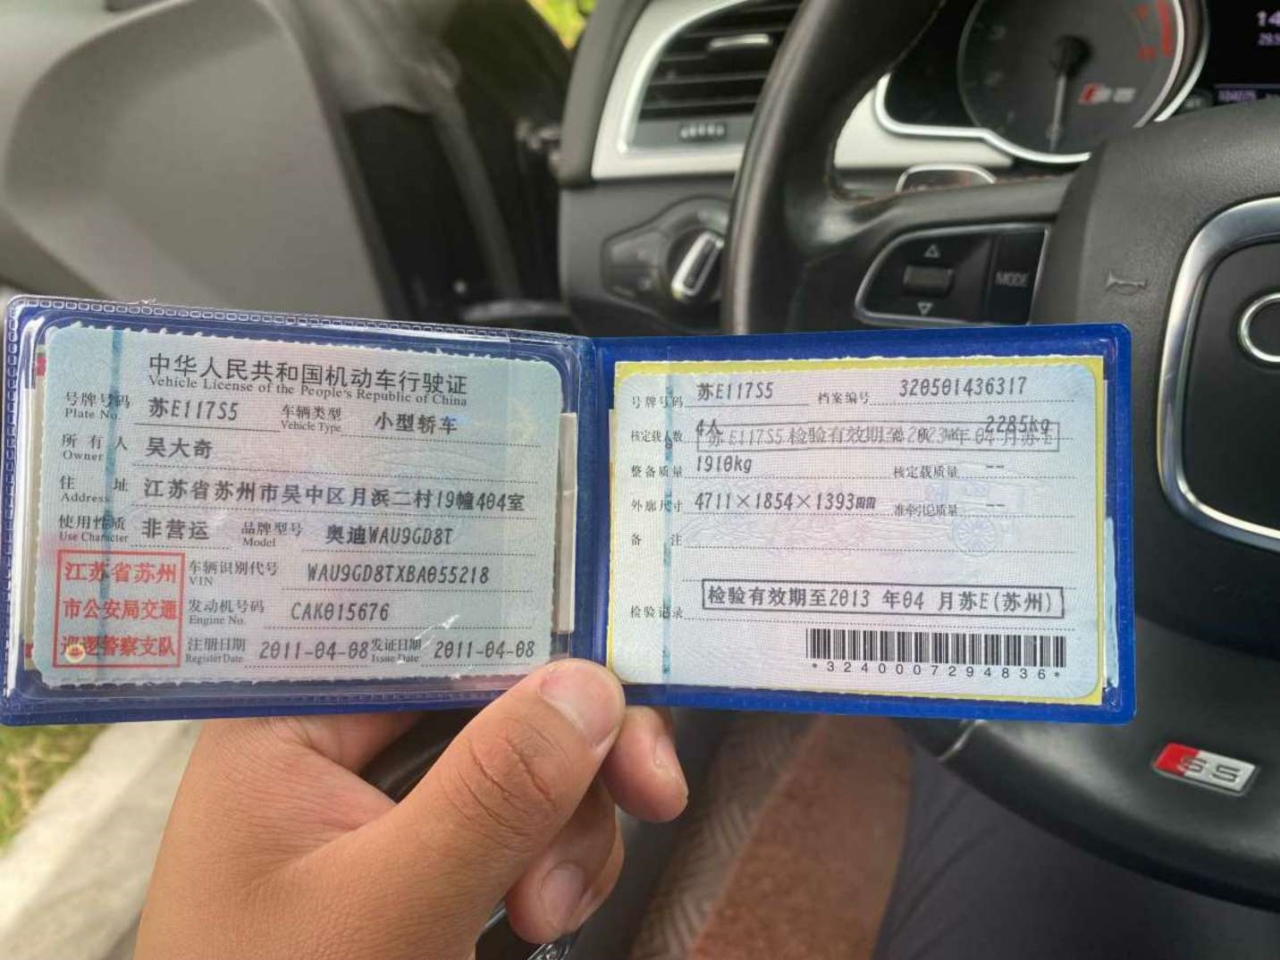 中华人民共和国机动车行驶证
Vehicle License of the People's Republic of China
号牌号码 Plate No. 苏E117S5 车辆类型 Vehicle Type 小型轿车
所有人 Owner 吴大奇
住址 Address 江苏省苏州市吴中区月浜二村19幢404室
使用性质 Use Character 非营运 品牌型号 Model 奥迪WAU9GD8T
江苏省苏州
市公安局交通
巡逻警察支队
车辆识别代号 VIN WAU9GD8TXBA055218
发动机号码 Engine No. CAK015676
注册日期 Register Date 2011-04-08 发证日期 Issue Date 2011-04-08
号牌号码 苏E117S5 档案编号 320501436317
核定载人数 4人 2285kg
苏E117S5 检验有效期至2023年04月苏E
整备质量 1910kg 核定载质量 --
外廓尺寸 4711×1854×1393mm 准牵引总质量 --
备注
检验记录 检验有效期至2013 年04 月苏E(苏州)
*3240007294836*
MODE
S5